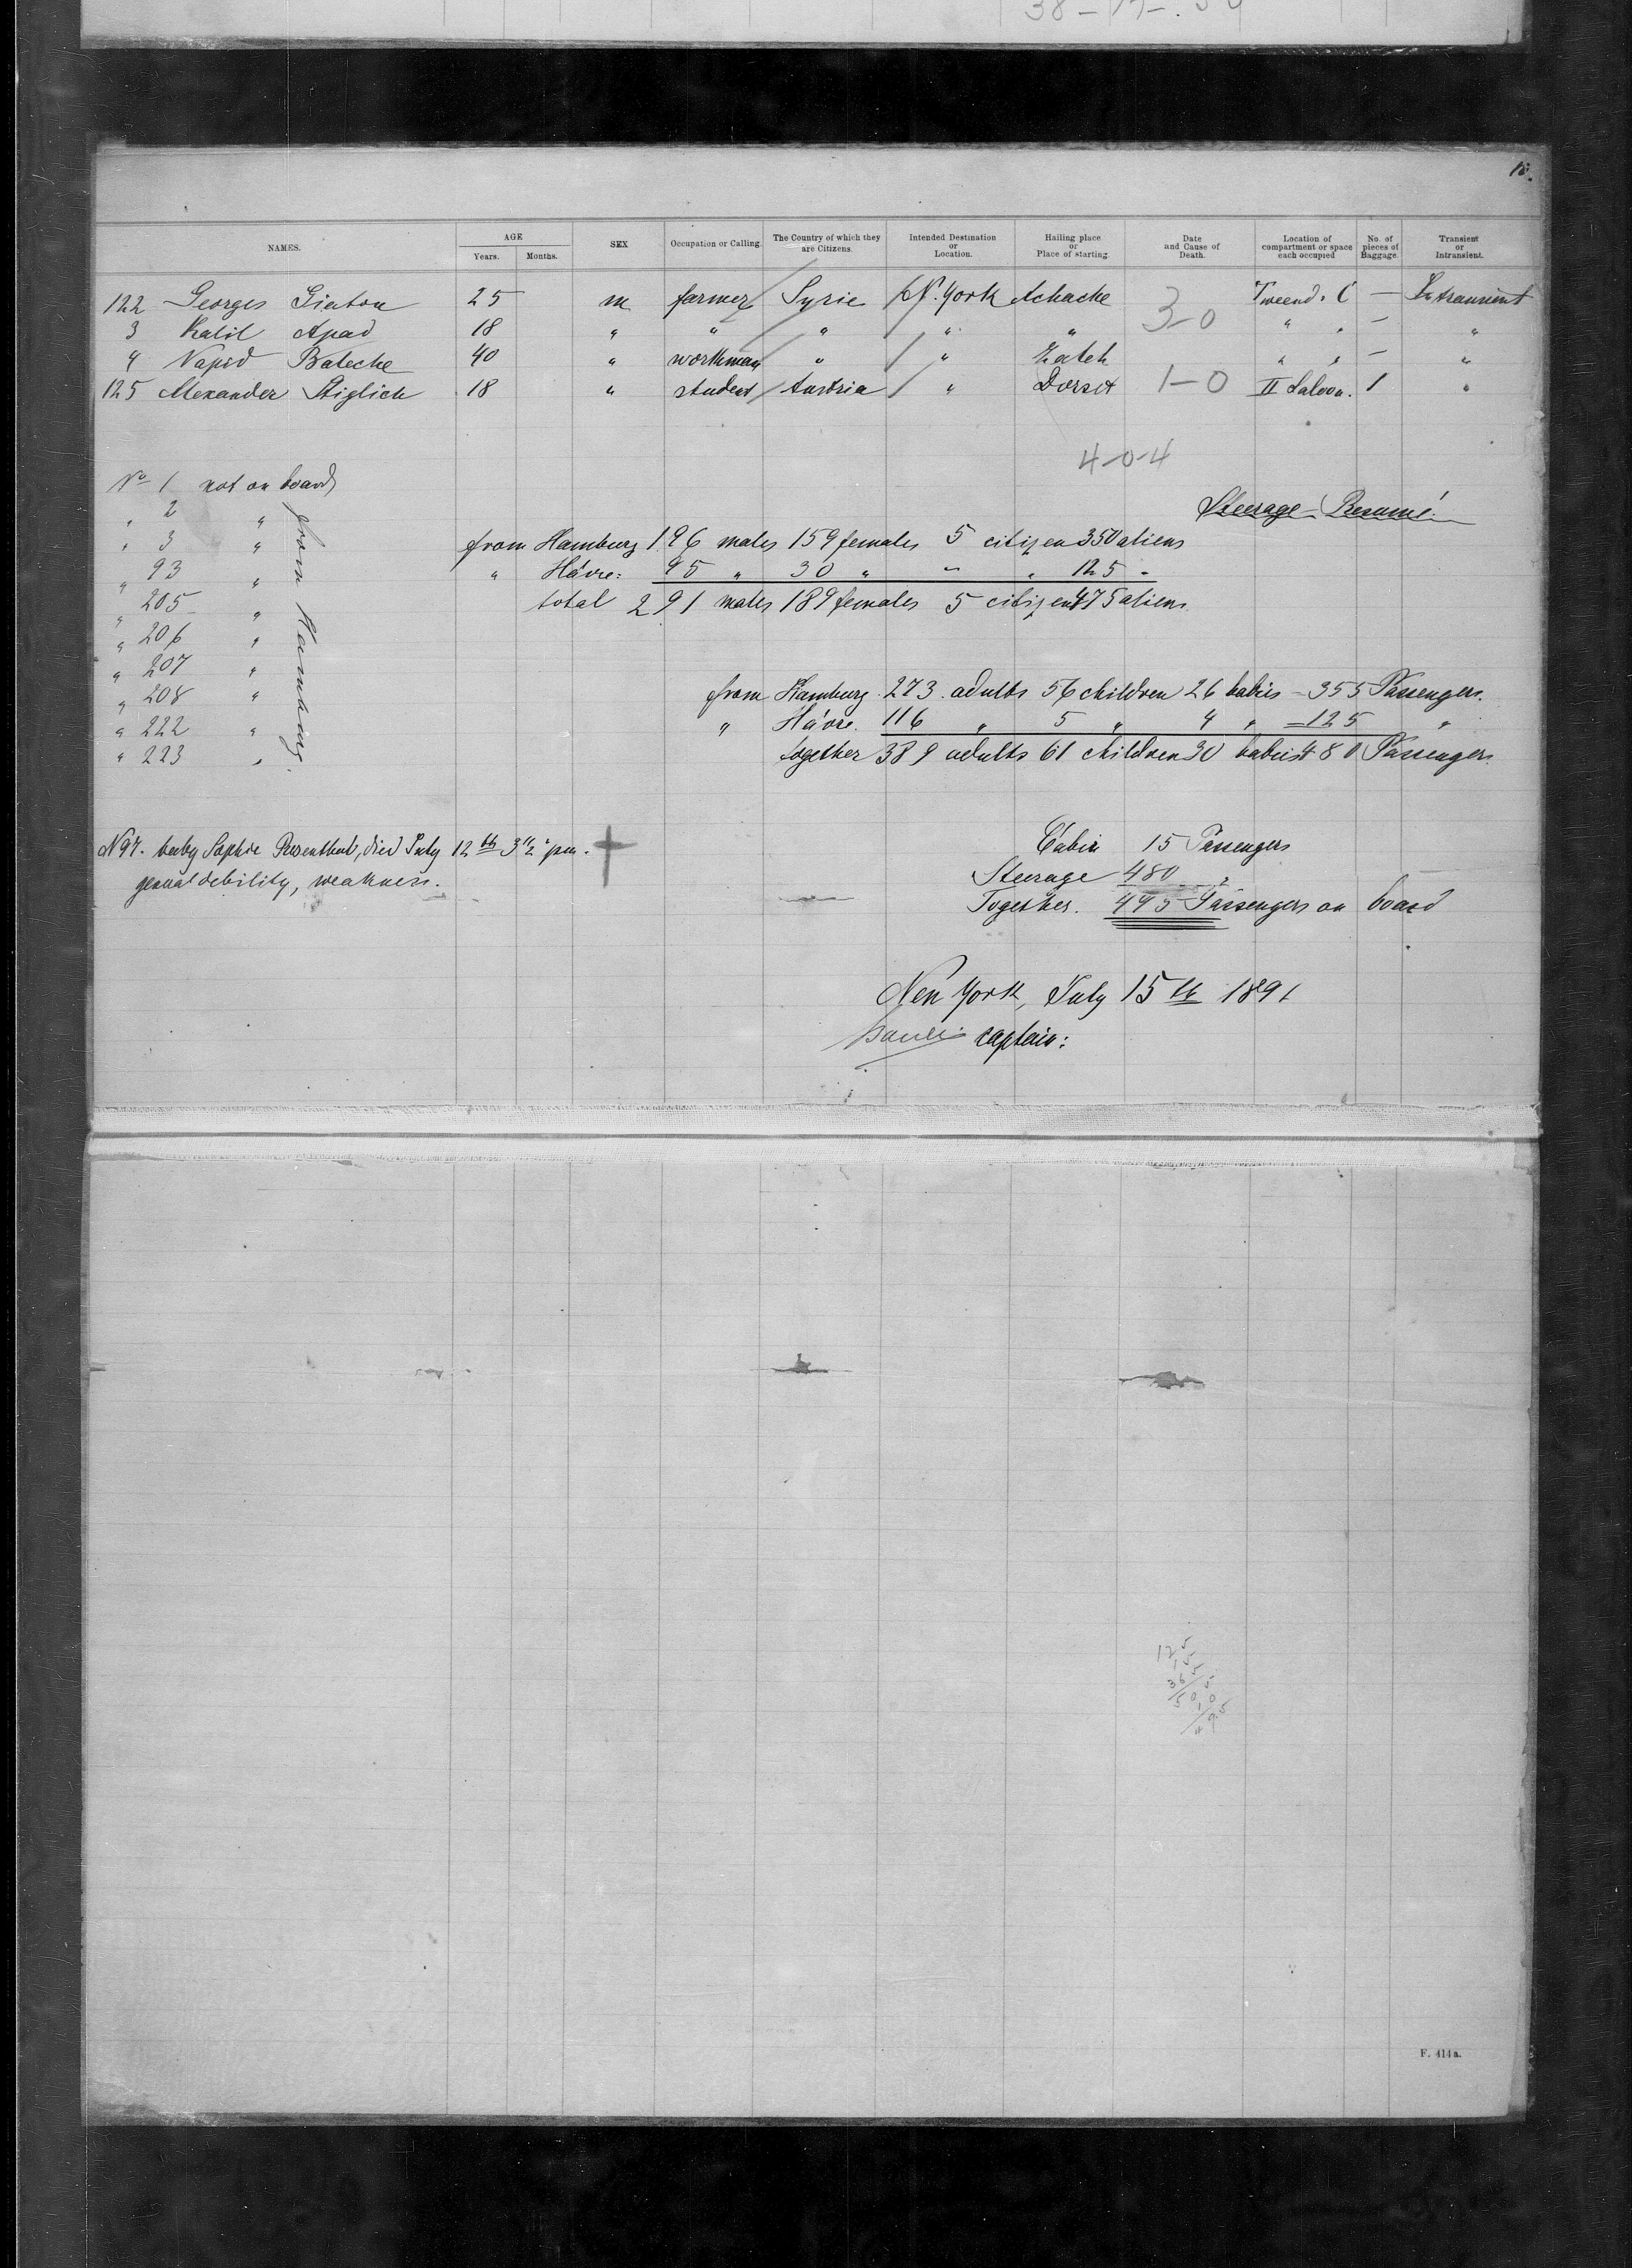 38-17-.
18.
NAMES. AGE Years. Months. SEX Occupation or Calling. The Country of which they are Citizens. Intended Destination or Location. Hailing place or Place of starting. Date and Cause of Death. Location of compartment or space each occupied No. of pieces of Baggage. Transient or Intransient.
122 Georges Giaton 25 m farmer Syrie N. York Achache Tweend. C — Intransient
3 Kalil Apad 18 " " " " " 3-0 " " — "
4 Napid Bateche 40 " workman " " Zateh " " — "
125 Alexander Stiglich 18 " student Austria " Dorset 1-0 II Saloon. 1 "
4-0-4
No 1 not on board
" 2 "
" 3 "
" 93 "
" 205 "
" 206 "
" 207 "
" 208 "
" 222 "
" 223 "
from Hamburg.
Steerage Resumé.
from Hamburg 196 males 159 females 5 citizen 350 aliens
" Hávre: 95 " 30 " — " 125 "
total 291 males 189 females 5 citizen 475 aliens.
from Hamburg 273 adults 56 children 26 babies = 355 Passengers.
" Hávre. 116 " 5 " 4 " = 125 "
together 389 adults 61 children 30 babies 480 Passengers.
N 97. baby Sophie Rosenthal, died July 12th 3 1/2 pm.
general debility, weakness.
Cabin 15 Passengers
Steerage 480 "
Together. 495 Passengers on board
New York, July 15th 1891
captain:
125
15
365
505
10
495
F. 414a.